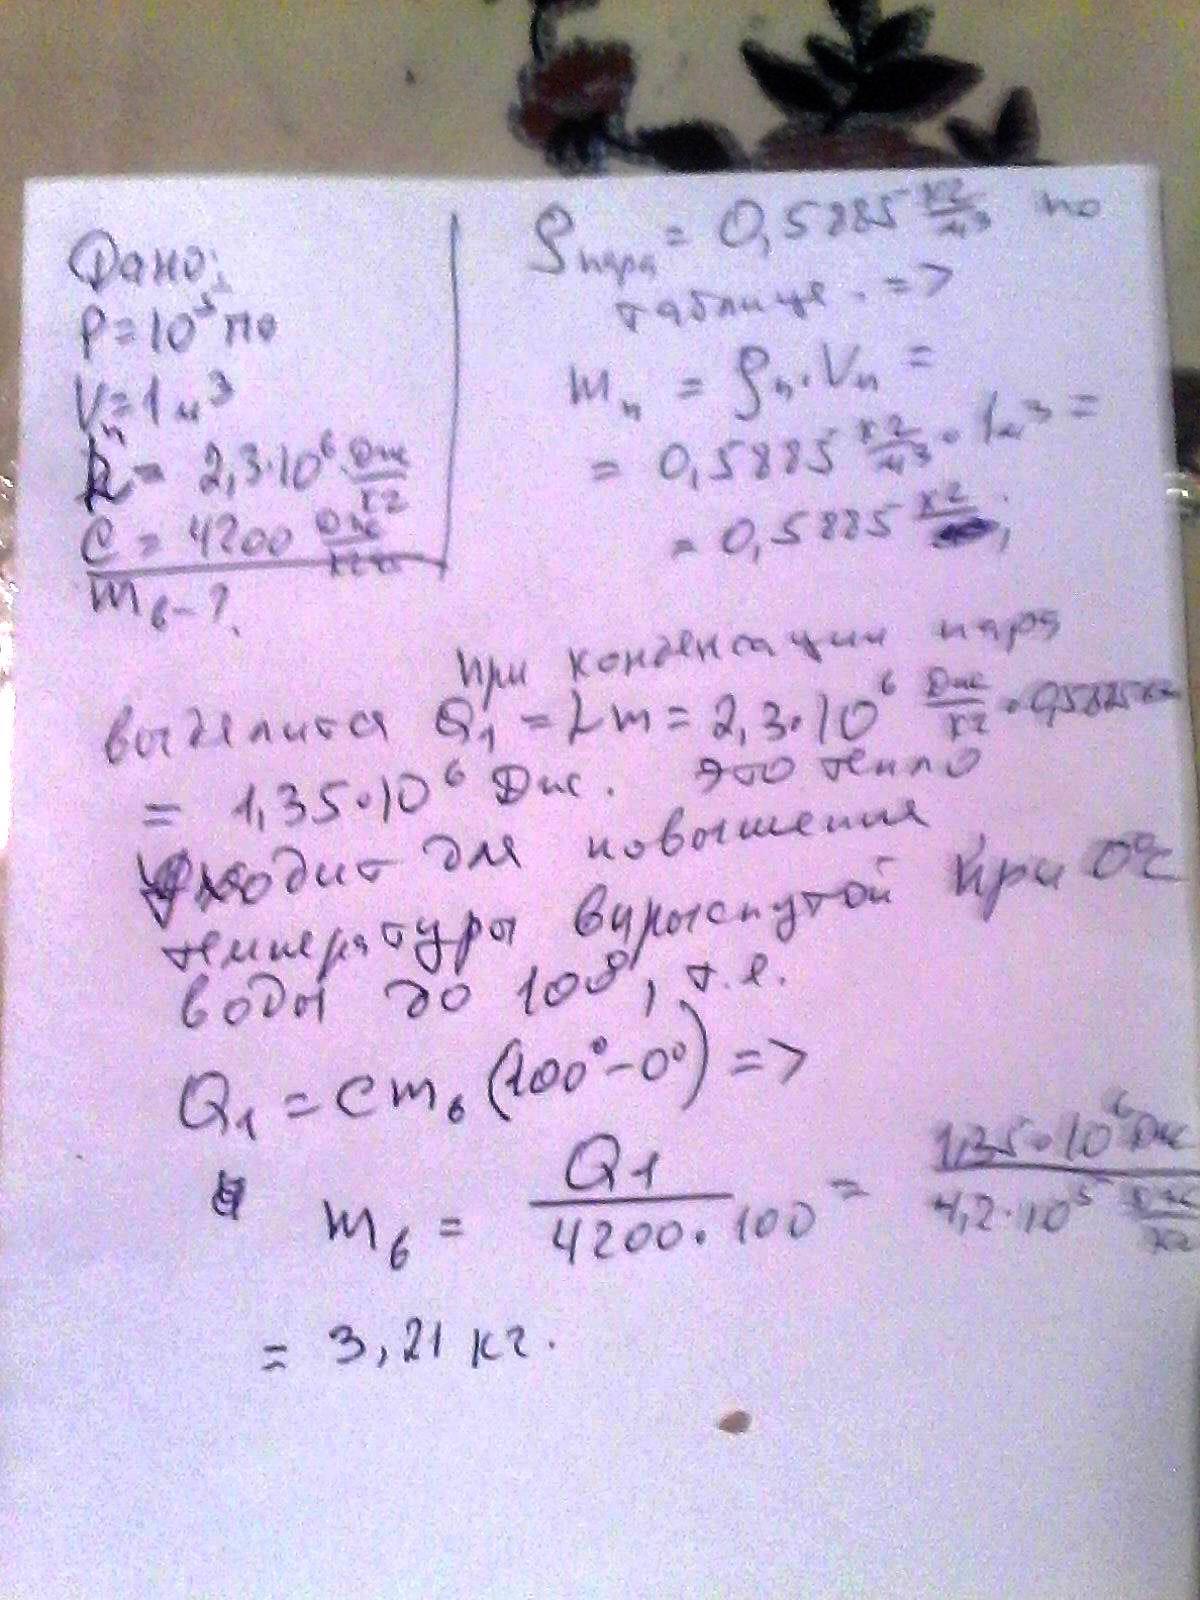 Дано:
P = 10⁵ Па
Vп = 1 м³
L = 2,3·10⁶ Дж/кг
C = 4200 Дж/
mв - ?
ρпара = 0,5885 кг/м³ по
таблице. =>
mп = ρп·Vп =
= 0,5885 кг/м³ · 1м³ =
= 0,5885 кг;
при конденсации пара
выделится Q₁ = Lm = 2,3·10⁶ Дж/кг · 0,5885кг
= 1,35·10⁶ Дж. это тепло
уходит для повышения
температуры впрыснутой при 0°C
воды до 100°, т.е.
Q₁ = cmв (100° - 0°) =>
mв = Q1/4200·100 = 1,35·10⁶ Дж/4,2·10⁵ Дж/кг
= 3,21 кг.